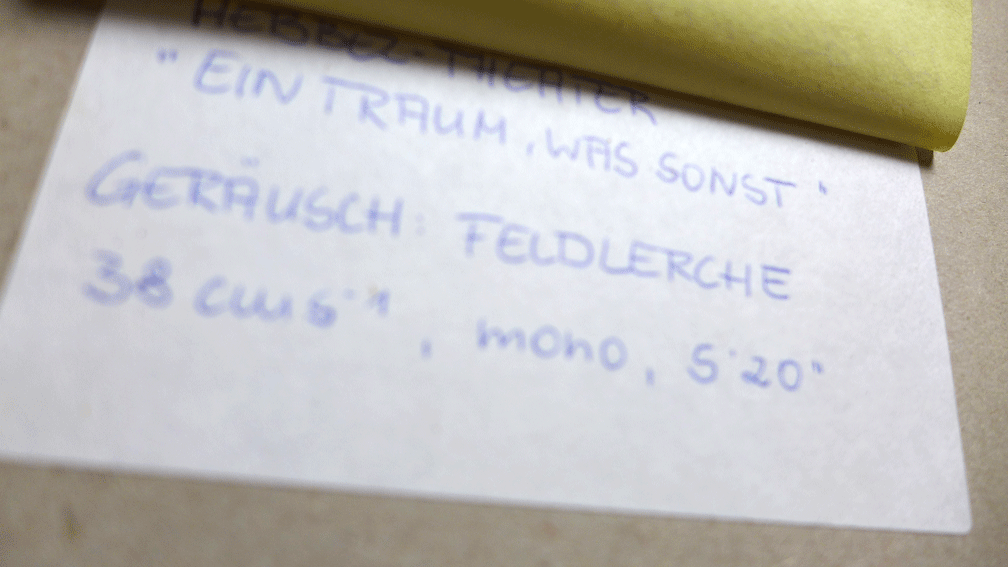 HEBBEL-THEATER
"EIN TRAUM, WAS SONST"
GERÄUSCH: FELDLERCHE
38 cms⁻¹, mono, 5'20"